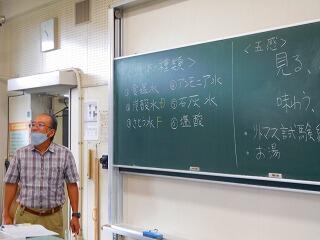 水の種類＞
①食塩水 ④アンモニア水
②炭酸水 ⑤石灰水
③さとう水 ⑥塩酸
＜五感＞
見る、
味わう、
・リトマス試験紙
・お湯